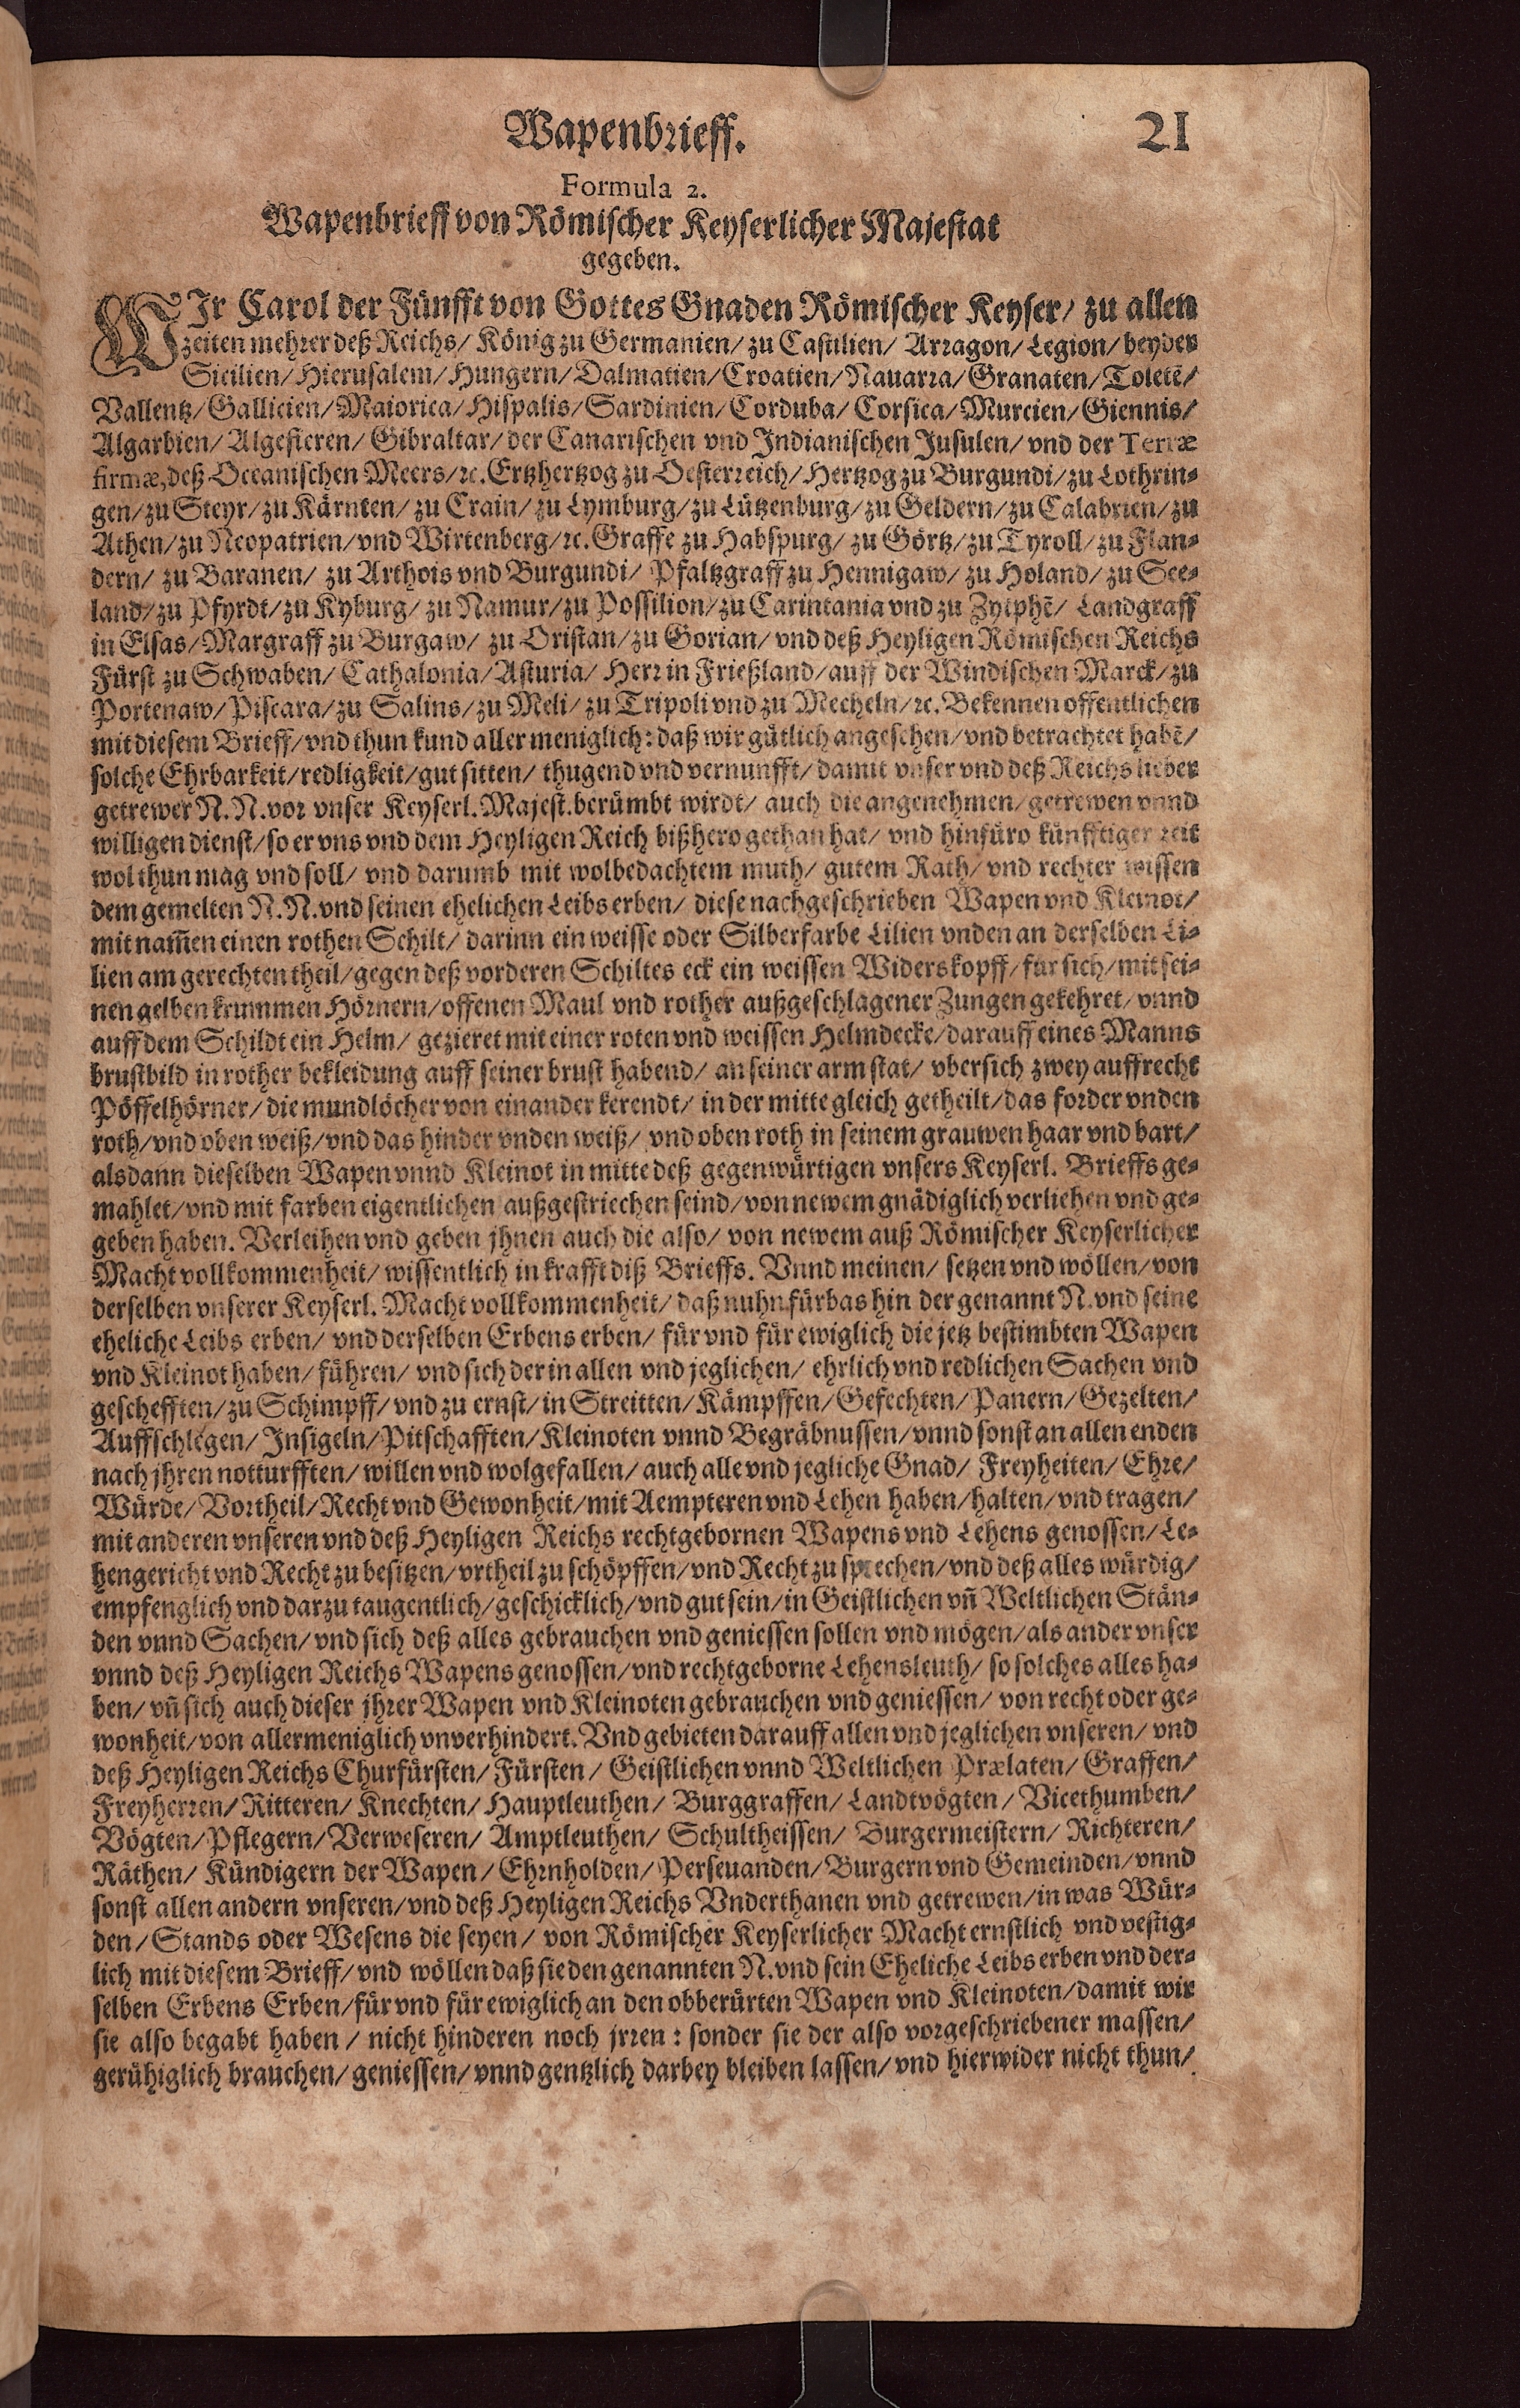 Wapenbrieff. 21
Formula 2.
Wapenbrieff von Römischer Keyserlicher Majestat
gegeben.
WIr Carol der Fünfft von Gottes Gnaden Römischer Keyser/ zu allen
zeiten mehrer deß Reichs/ König zu Germanien/ zu Castilien/ Arragon/ Legion/ beyder
Sicilien/ Hierusalem/ Hungern/ Dalmatien/ Croatien/ Nauarra/ Granaten/ Toletē/
Vallentz/ Gallicien/ Maiorica/ Hispalis/ Sardinien/ Corduba/ Corsica/ Murcien/ Giennis/
Algarbien/ Algesieren/ Gibraltar/ der Canarischen vnd Indianischen Jusulen/ vnd der Terræ
firmæ, deß Oceanischen Meers/ ꝛc. Ertzhertzog zu Oesterreich/ Hertzog zu Burgundi/ zu Lothrin-
gen/ zu Steyr/ zu Kärnten/ zu Crain/ zu Lymburg/ zu Lützenburg/ zu Geldern/ zu Calabrien/ zu
Athen/ zu Neopatrien/ vnd Wirtenberg/ ꝛc. Graffe zu Habspurg/ zu Görtz/ zu Tyroll/ zu Flan-
dern/ zu Baranen/ zu Arthois vnd Burgundi/ Pfaltzgraff zu Hennigaw/ zu Holand/ zu See-
land/ zu Pfyrdt/ zu Kyburg/ zu Namur/ zu Possilion/ zu Carintania vnd zu Zytphē/ Landgraff
in Elsas/ Margraff zu Burgaw/ zu Oristan/ zu Gorian/ vnd deß Heyligen Römischen Reichs
Fürst zu Schwaben/ Cathalonia/ Asturia/ Herr in Frießland/ auff der Windischen Marck/ zu
Portenaw/ Piscara/ zu Salins/ zu Meli/ zu Tripoli vnd zu Mecheln/ ꝛc. Bekennen offentlichen
mit diesem Brieff/ vnd thun kund aller meniglich: daß wir gütlich angesehen/ vnd betrachtet habē/
solche Ehrbarkeit/ redligkeit/ gut sitten/ thugend vnd vernunfft/ damit vnser vnd deß Reichs lieber
getrewer N. N. vor vnser Keyserl. Majest. berümbt wirdt/ auch die angenehmen/ getrewen vnnd
willigen dienst/ so er vns vnd dem Heyligen Reich bißhero gethan hat/ vnd hinfüro künfftiger zeit
wol thun mag vnd soll/ vnd darumb mit wolbedachtem muth/ gutem Rath/ vnd rechter wissen
dem gemelten N. N. vnd seinen ehelichen Leibs erben/ diese nachgeschrieben Wapen vnd Kleinot/
mit nam̄en einen rothen Schilt/ darinn ein weisse oder Silberfarbe Lilien vnden an derselben Li-
lien am gerechten theil/ gegen deß vorderen Schiltes eck ein weissen Widerskopff/ für sich/ mit sei-
nen gelben krummen Hörnern/ offenen Maul vnd rother außgeschlagener Zungen gekehret/ vnnd
auff dem Schildt ein Helm/ gezieret mit einer roten vnd weissen Helmdecke/ darauff eines Manns
brustbild in rother bekleidung auff seiner brust habend/ an seiner arm stat/ vbersich zwey auffrecht
Pöffelhörner/ die mundlöcher von einander kerendt/ in der mitte gleich getheilt/ das forder vnden
roth/ vnd oben weiß/ vnd das hinder vnden weiß/ vnd oben roth in seinem grauwen haar vnd bart/
alsdann dieselben Wapen vnnd Kleinot in mitte deß gegenwürtigen vnsers Keyserl. Brieffs ge-
mahlet/ vnd mit farben eigentlichen außgestriechen seind/ von newem gnädiglich verliehen vnd ge-
geben haben. Verleihen vnd geben jhnen auch die also/ von newem auß Römischer Keyserlicher
Macht vollkommenheit/ wissentlich in krafft diß Brieffs. Vnnd meinen/ setzen vnd wöllen/ von
derselben vnserer Keyserl. Macht vollkommenheit/ daß nuhn fürbas hin der genannt N. vnd seine
eheliche Leibs erben/ vnd derselben Erbens erben/ für vnd für ewiglich die jetz bestimbten Wapen
vnd Kleinot haben/ führen/ vnd sich der in allen vnd jeglichen/ ehrlich vnd redlichen Sachen vnd
geschefften/ zu Schimpff/ vnd zu ernst/ in Streitten/ Kämpffen/ Gefechten/ Panern/ Gezelten/
Auffschlegen/ Insigeln/ Pitschafften/ Kleinoten vnnd Begräbnussen/ vnnd sonst an allen enden
nach jhren notturfften/ willen vnd wolgefallen/ auch alle vnd jegliche Gnad/ Freyheiten/ Ehre/
Würde/ Vortheil/ Recht vnd Gewonheit/ mit Aempteren vnd Lehen haben/ halten/ vnd tragen/
mit anderen vnseren vnd deß Heyligen Reichs rechtgebornen Wapens vnd Lehens genossen/ Le-
hengericht vnd Recht zu besitzen/ vrtheil zu schöpffen/ vnd Recht zu sprechen/ vnd deß alles würdig/
empfenglich vnd darzu taugentlich/ geschicklich/ vnd gut sein/ in Geistlichen vn̄ Weltlichen Stän-
den vnnd Sachen/ vnd sich deß alles gebrauchen vnd geniessen sollen vnd mögen/ als ander vnser
vnnd deß Heyligen Reichs Wapens genossen/ vnd rechtgeborne Lehensleuth/ so solches alles ha-
ben/ vn̄ sich auch dieser jhrer Wapen vnd Kleinoten gebrauchen vnd geniessen/ von recht oder ge-
wonheit/ von allermeniglich vnverhindert. Vnd gebieten darauff allen vnd jeglichen vnseren/ vnd
deß Heyligen Reichs Churfürsten/ Fürsten/ Geistlichen vnnd Weltlichen Prælaten/ Graffen/
Freyherren/ Ritteren/ Knechten/ Hauptleuthen/ Burggraffen/ Landtvögten/ Vicethumben/
Vögten/ Pflegern/ Verweseren/ Amptleuthen/ Schultheissen/ Burgermeistern/ Richteren/
Räthen/ Kündigern der Wapen/ Ehrnholden/ Perseuanden/ Burgern vnd Gemeinden/ vnnd
sonst allen andern vnseren/ vnd deß Heyligen Reichs Vnderthanen vnd getrewen/ in was Wür-
den/ Stands oder Wesens die seyen/ von Römischer Keyserlicher Macht ernstlich vnd vestig-
lich mit diesem Brieff/ vnd wöllen daß sie den genannten N. vnd sein Eheliche Leibs erben vnd der-
selben Erbens Erben/ für vnd für ewiglich an den obberürten Wapen vnd Kleinoten/ damit wir
sie also begabt haben/ nicht hinderen noch jrren: sonder sie der also vorgeschriebener massen/
gerühiglich brauchen/ geniessen/ vnnd gentzlich darbey bleiben lassen/ vnd hierwider nicht thun/